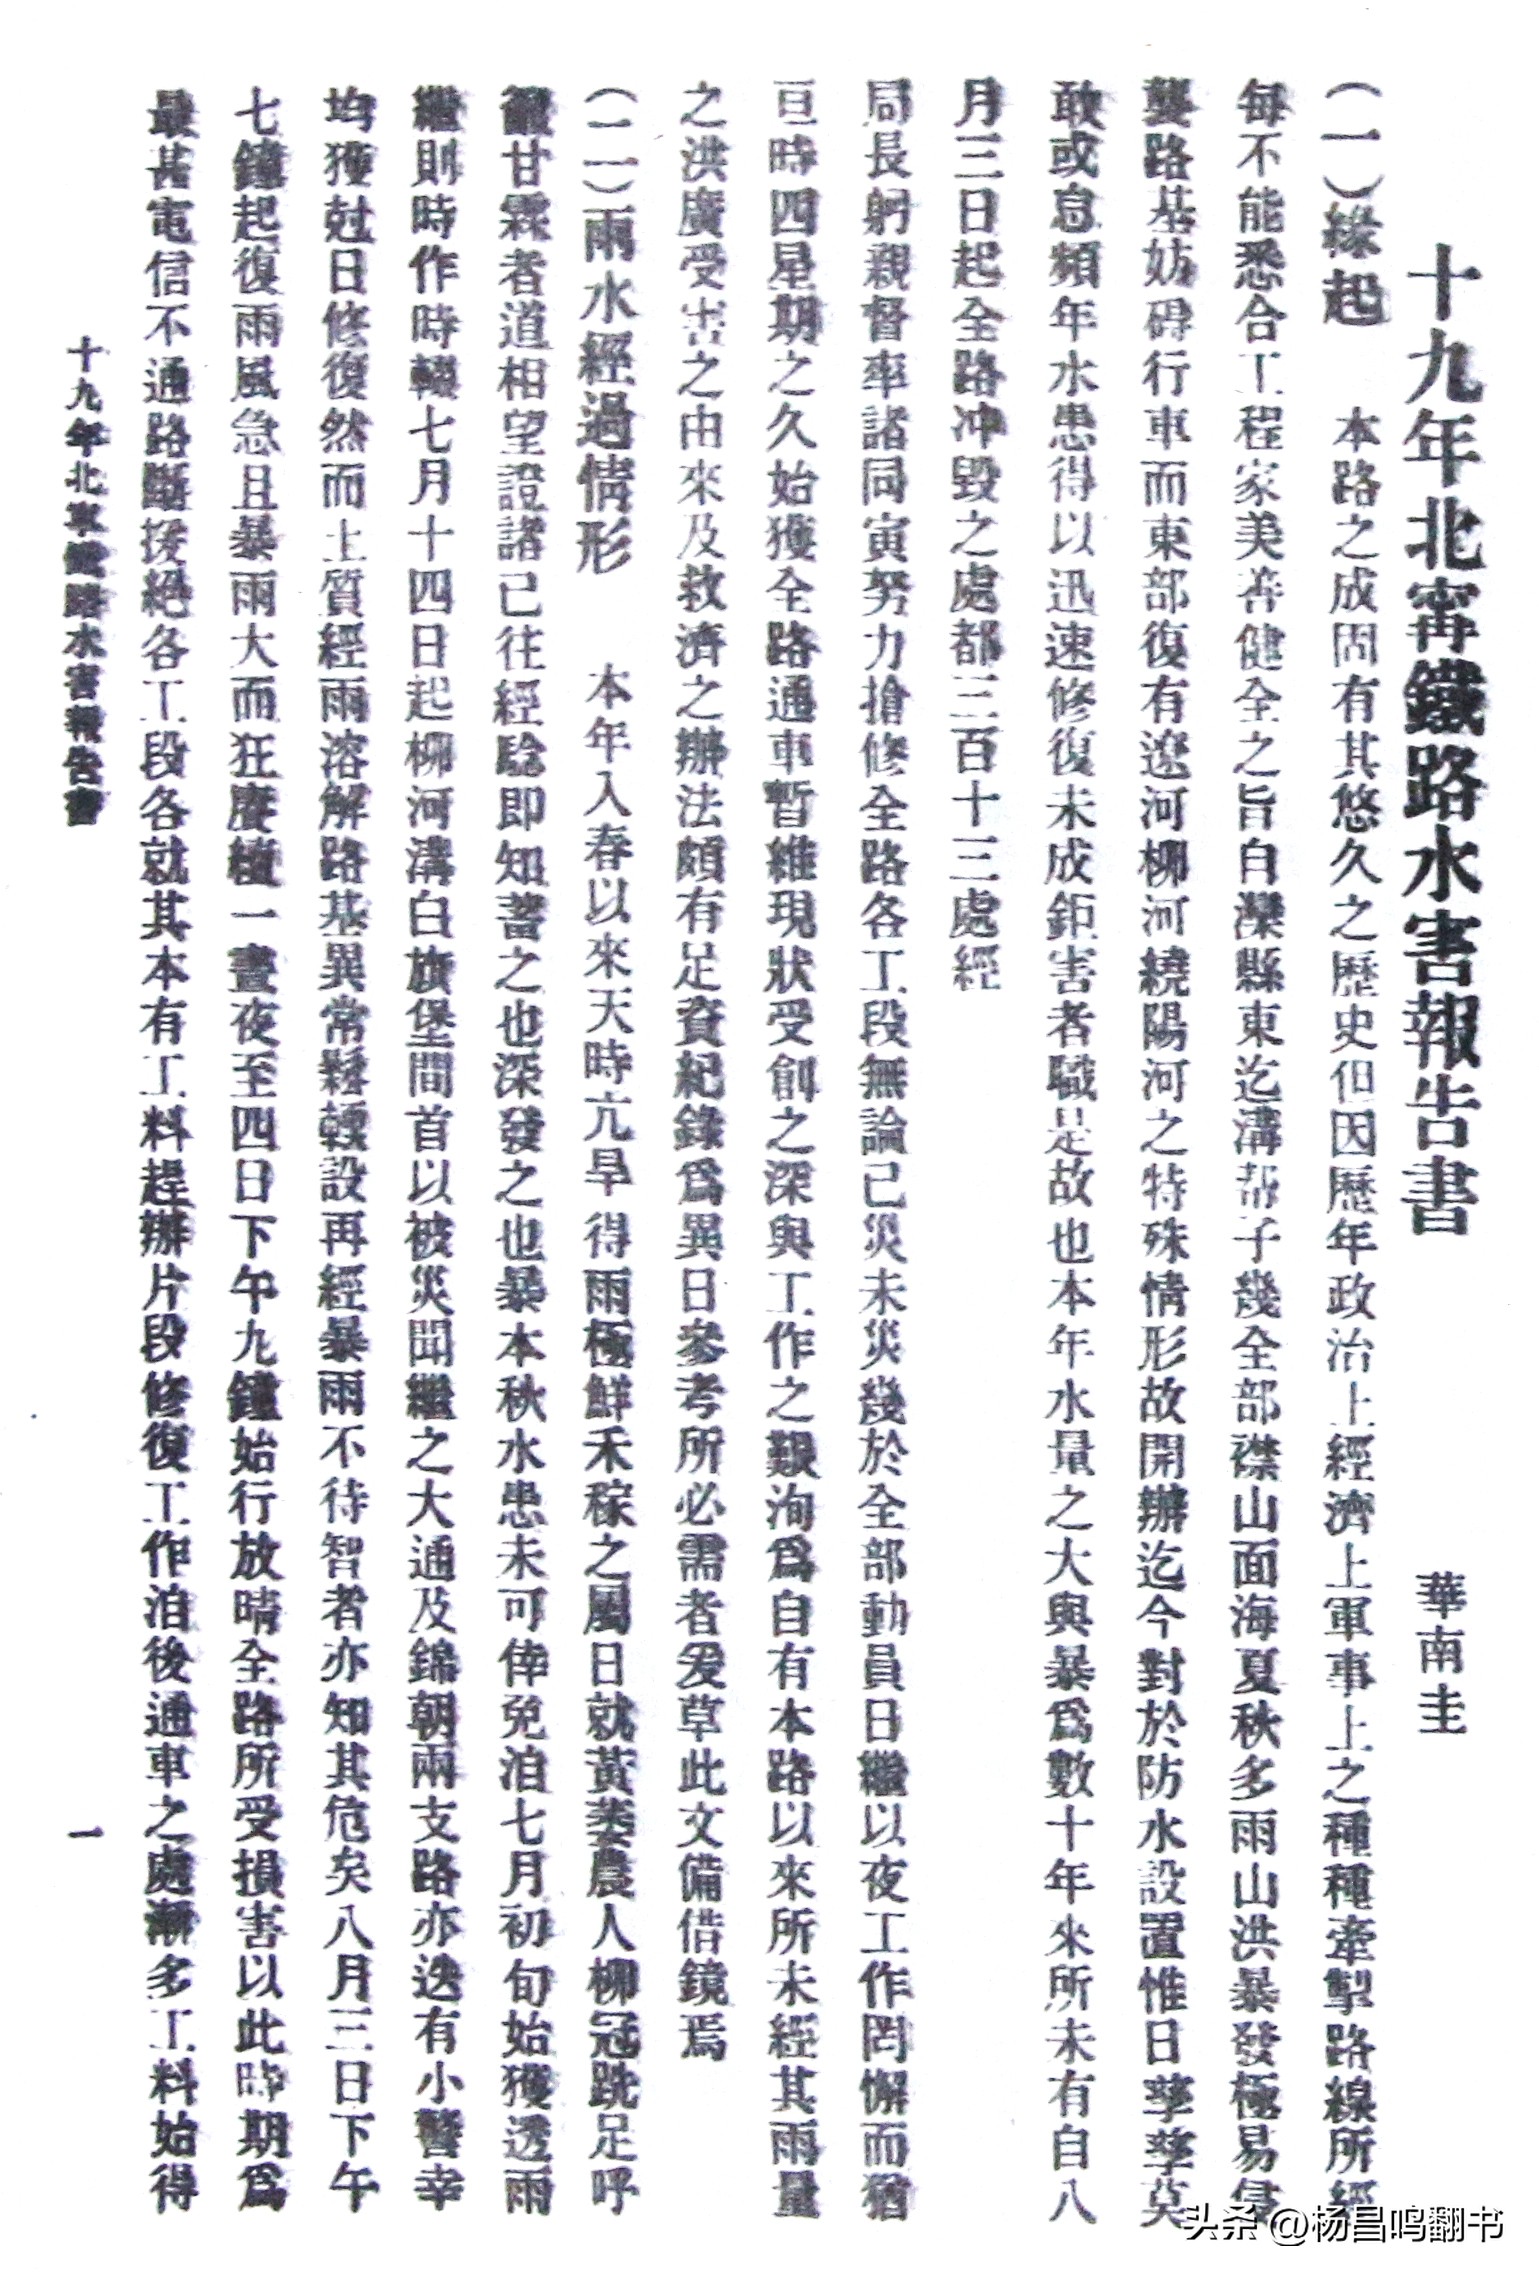 十九年北甯鐵路水害報告書
華南圭
(一)緣起 本路之成固有其悠久之歷史但因歷年政治上經濟上軍事上之種種牽掣路線所經
每不能悉合工程家美善健全之旨自灤縣東迄溝幇子幾全部襟山面海夏秋多雨山洪暴發極易侵
襲路基妨碍行車而東部復有遼河柳河繞陽河之特殊情形故開辦迄今對於防水設置惟日孳孳莫
敢或怠頻年水患得以迅速修復未成鉅害者職是故也本年水量之大與暴爲數十年來所未有自八
月三日起全路冲毀之處都三百十三處經
局長躬親督率諸同寅努力搶修全路各工段無論已災未災幾於全部動員日繼以夜工作罔懈而猶
亘時四星期之久始獲全路通車暫維現狀受創之深與工作之艱洵爲自有本路以來所未經其雨量
之洪廣受害之由來及救濟之辦法頗有足資紀錄爲異日參考所必需者爰草此文備借鏡焉
(二)雨水經過情形 本年入春以來天時亢旱得雨極鮮禾稼之屬日就黃萎農人柳冠跣足呼
籲甘霖者道相望證諸已往經騐即知蓄之也深發之也暴本秋水患未可倖免洎七月初旬始獲透雨
繼則時作時輟七月十四日起柳河溝白旗堡間首以被災聞繼之大通及錦朝兩支路亦迭有小警幸
均獲尅日修復然而土質經雨溶解路基異常鬆輭設再經暴雨不待智者亦知其危矣八月三日下午
七鐘起復雨風急且暴雨大而狂賡續一晝夜至四日下午九鐘始行放晴全路所受損害以此時期爲
最甚電信不通路斷援絕各工段各就其本有工料趕辦片段修復工作洎後通車之處漸多工料始得
十九年北甯鐵路水害報告書
一
头条 @杨昌鸣翻书